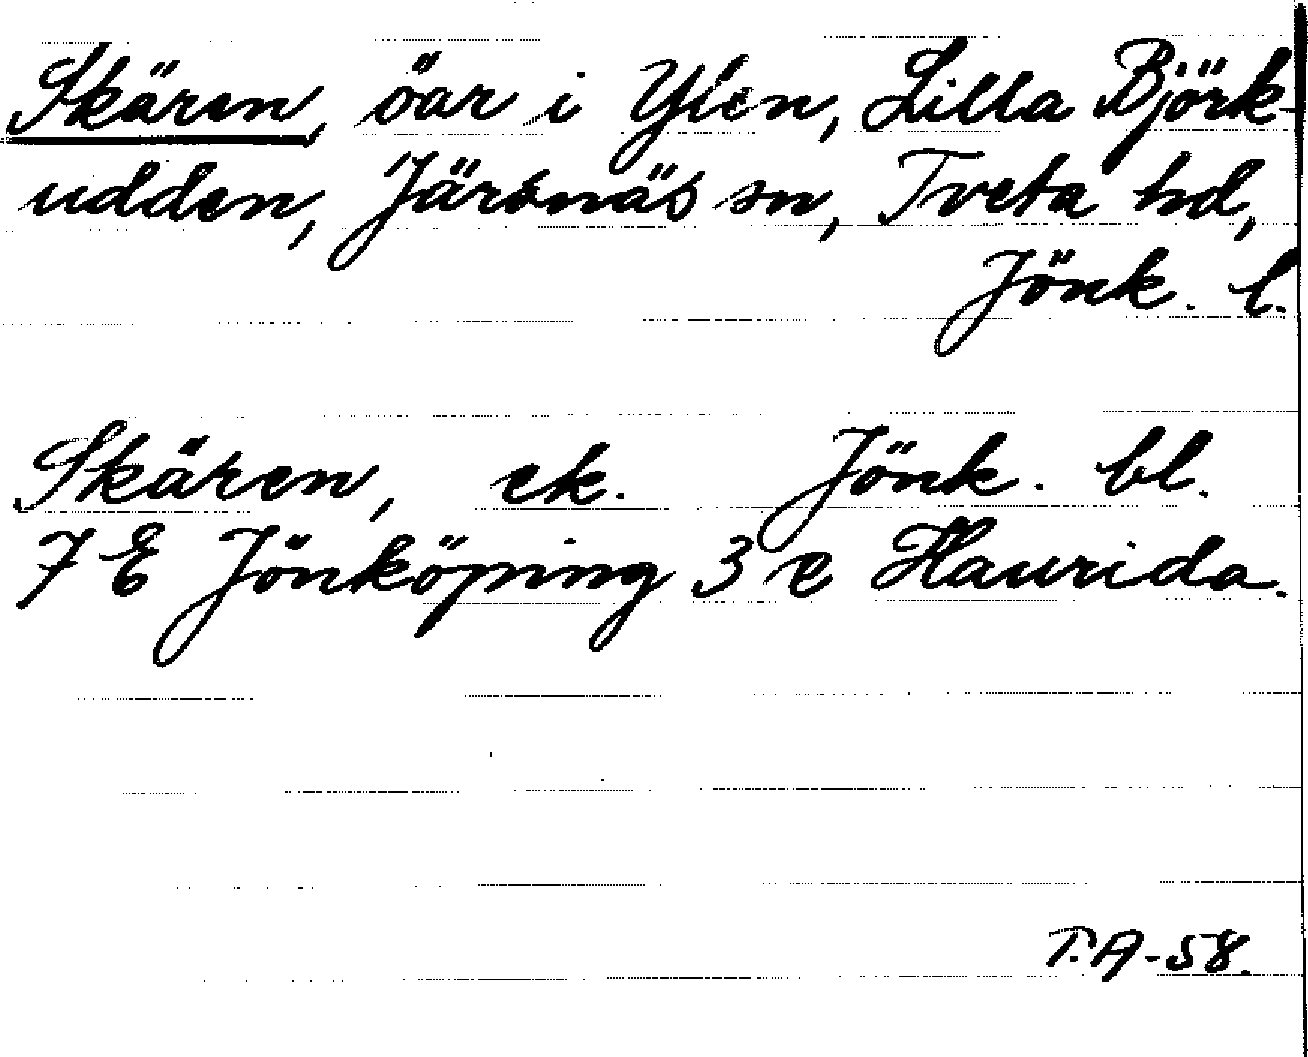 Skären, öar i Ylen, Lilla Björk-
udden, Järsnäs sn, Tveta hd,
Jönk. l.
Skären, ek. Jönk. bl.
7 E Jönköping 3 e Haurida.
T.A-58.